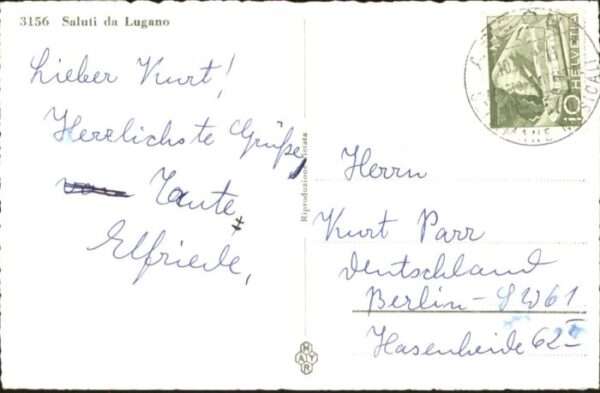 3156 Saluti da Lugano
Lieber Kurt!
Herzlichste Grüße,
Tante
Elfriede,
Riproduzione vietata
HELVETIA
10
Herrn
Kurt Parr
Deutschland
Berlin - SW 61
Hasenheide 62 I